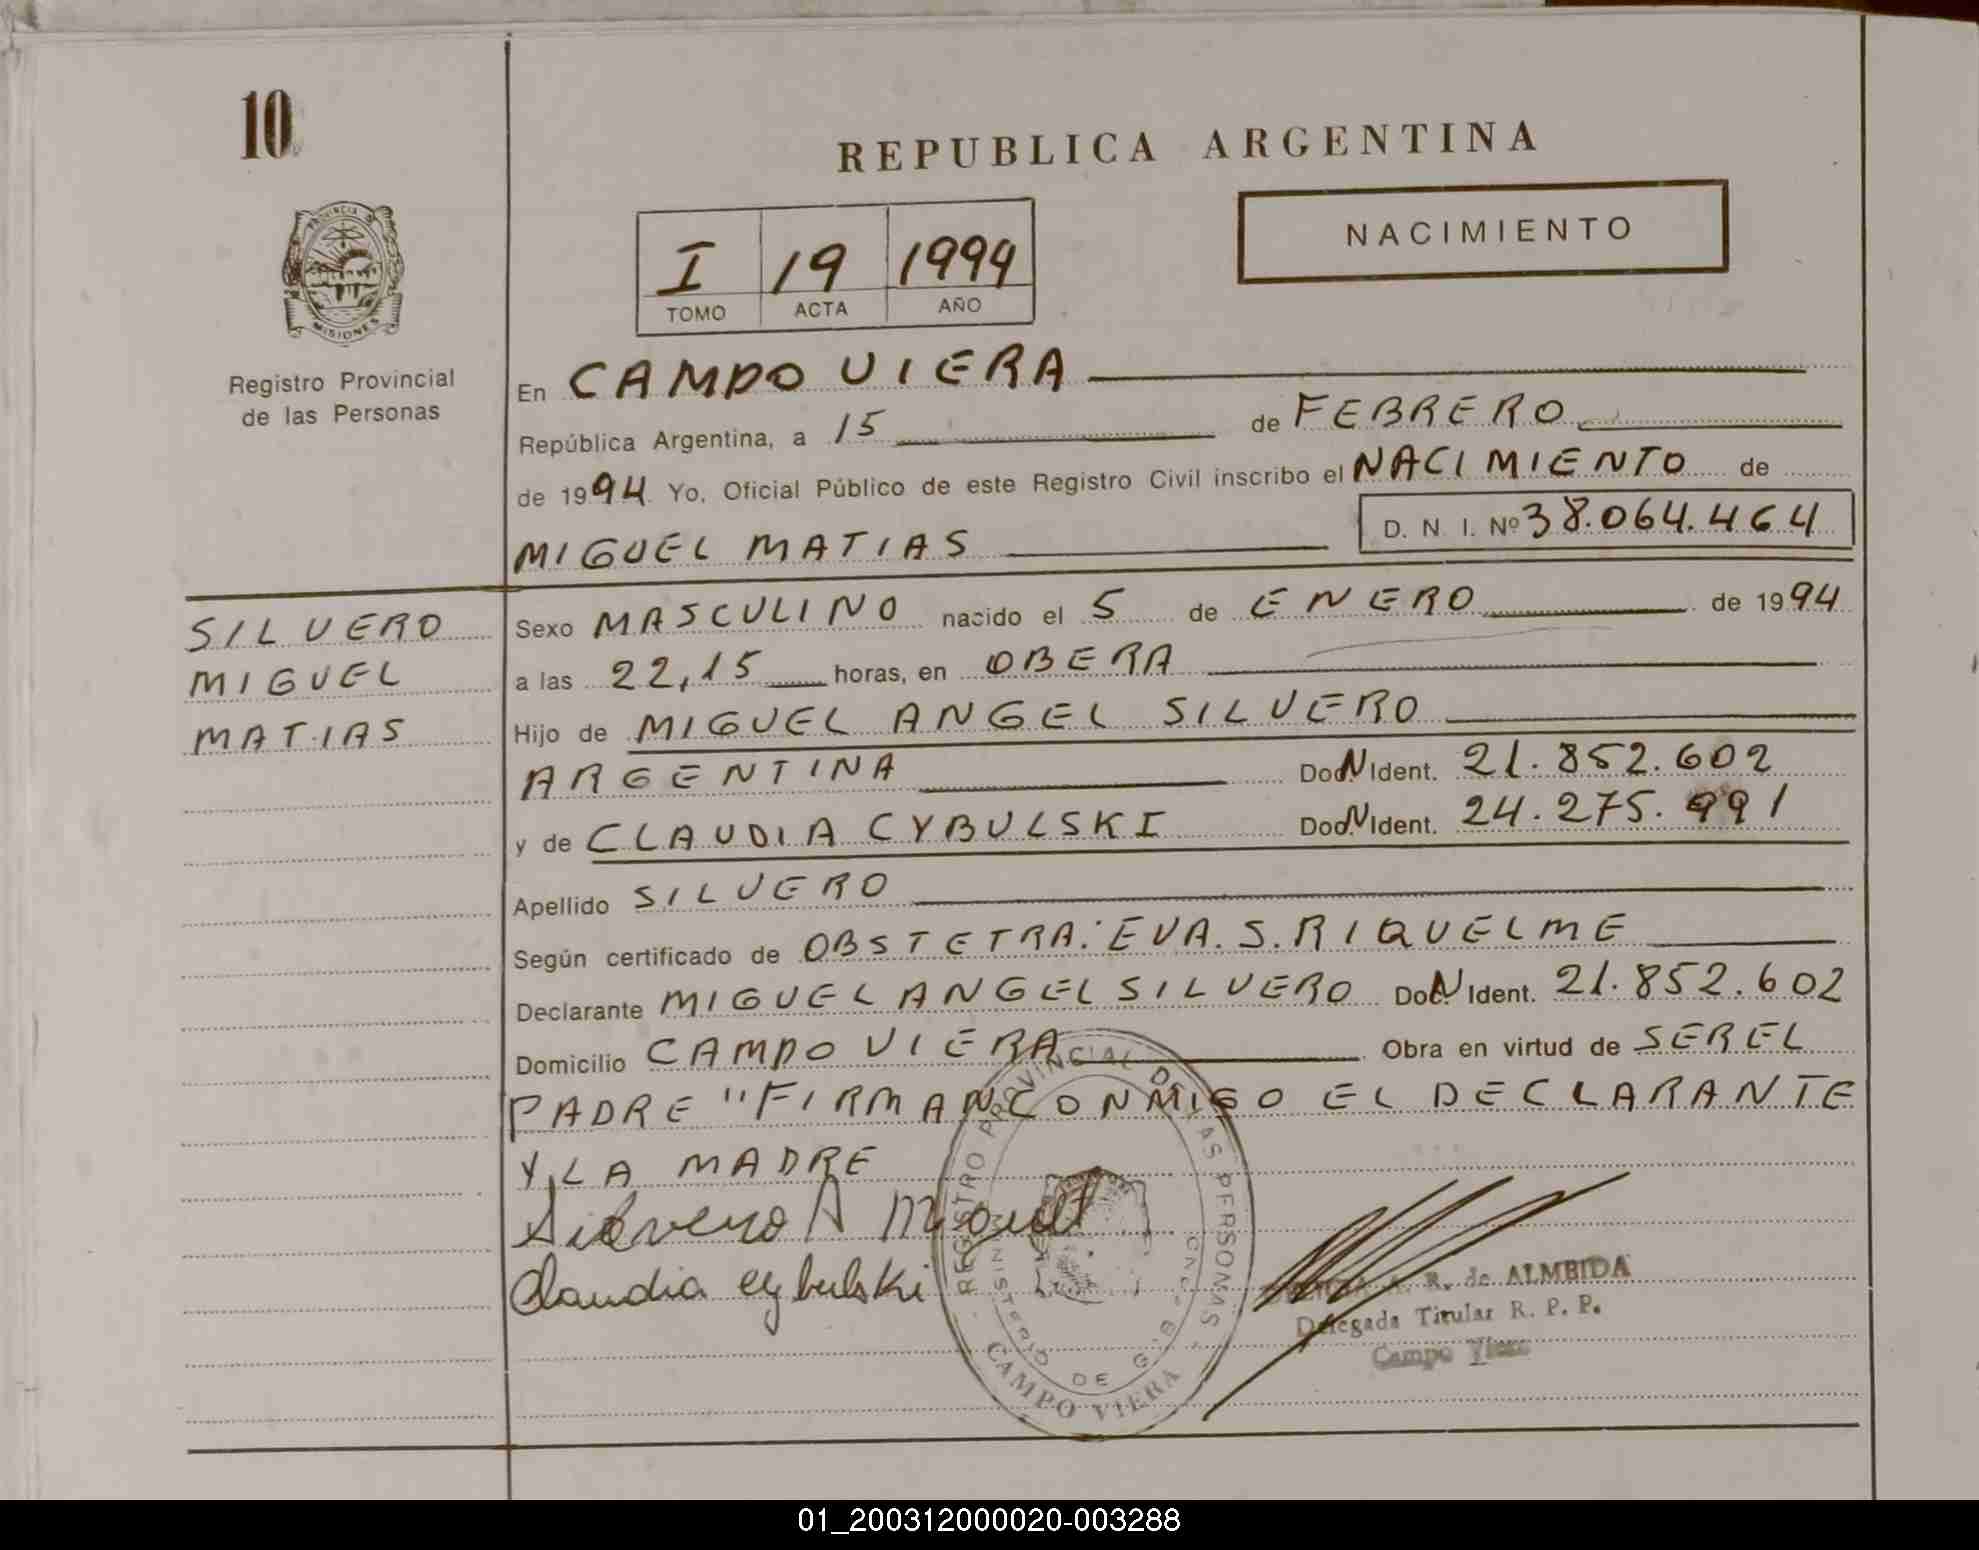 10
REPUBLICA ARGENTINA
NACIMIENTO
I 19 1994
TOMO ACTA AÑO
PROVINCIA D
MISIONES
Registro Provincial
de las Personas
En CAMPO VIERA
República Argentina, a 15 de FEBRERO
de 1994 Yo, Oficial Público de este Registro Civil inscribo el NACIMIENTO de
MIGUEL MATIAS D. N. I. Nº 38.064.464
SILVERO
MIGUEL
MATIAS
Sexo MASCULINO nacido el 5 de ENERO de 1994
a las 22,15 horas, en OBERA
Hijo de MIGUEL ANGEL SILVERO
ARGENTINA Doc. N Ident. 21.852.602
y de CLAUDIA CYBULSKI Doc. N Ident. 24.275.991
Apellido SILVERO
Según certificado de OBSTETRA: EVA. S. RIQUELME
Declarante MIGUEL ANGEL SILVERO Doc. N Ident. 21.852.602
Domicilio CAMPO VIERA Obra en virtud de SER EL
PADRE "FIRMAN CONMIGO EL DECLARANTE
Y LA MADRE
Silvero A Miguel
Claudia Cybulski
REGISTRO PROVINCIAL DE LAS PERSONAS
MINISTERIO DE G.
CAMPO VIERA
A. R. de ALMEIDA
Delegada Titular R. P. P.
Campo Viera
01_200312000020-003288